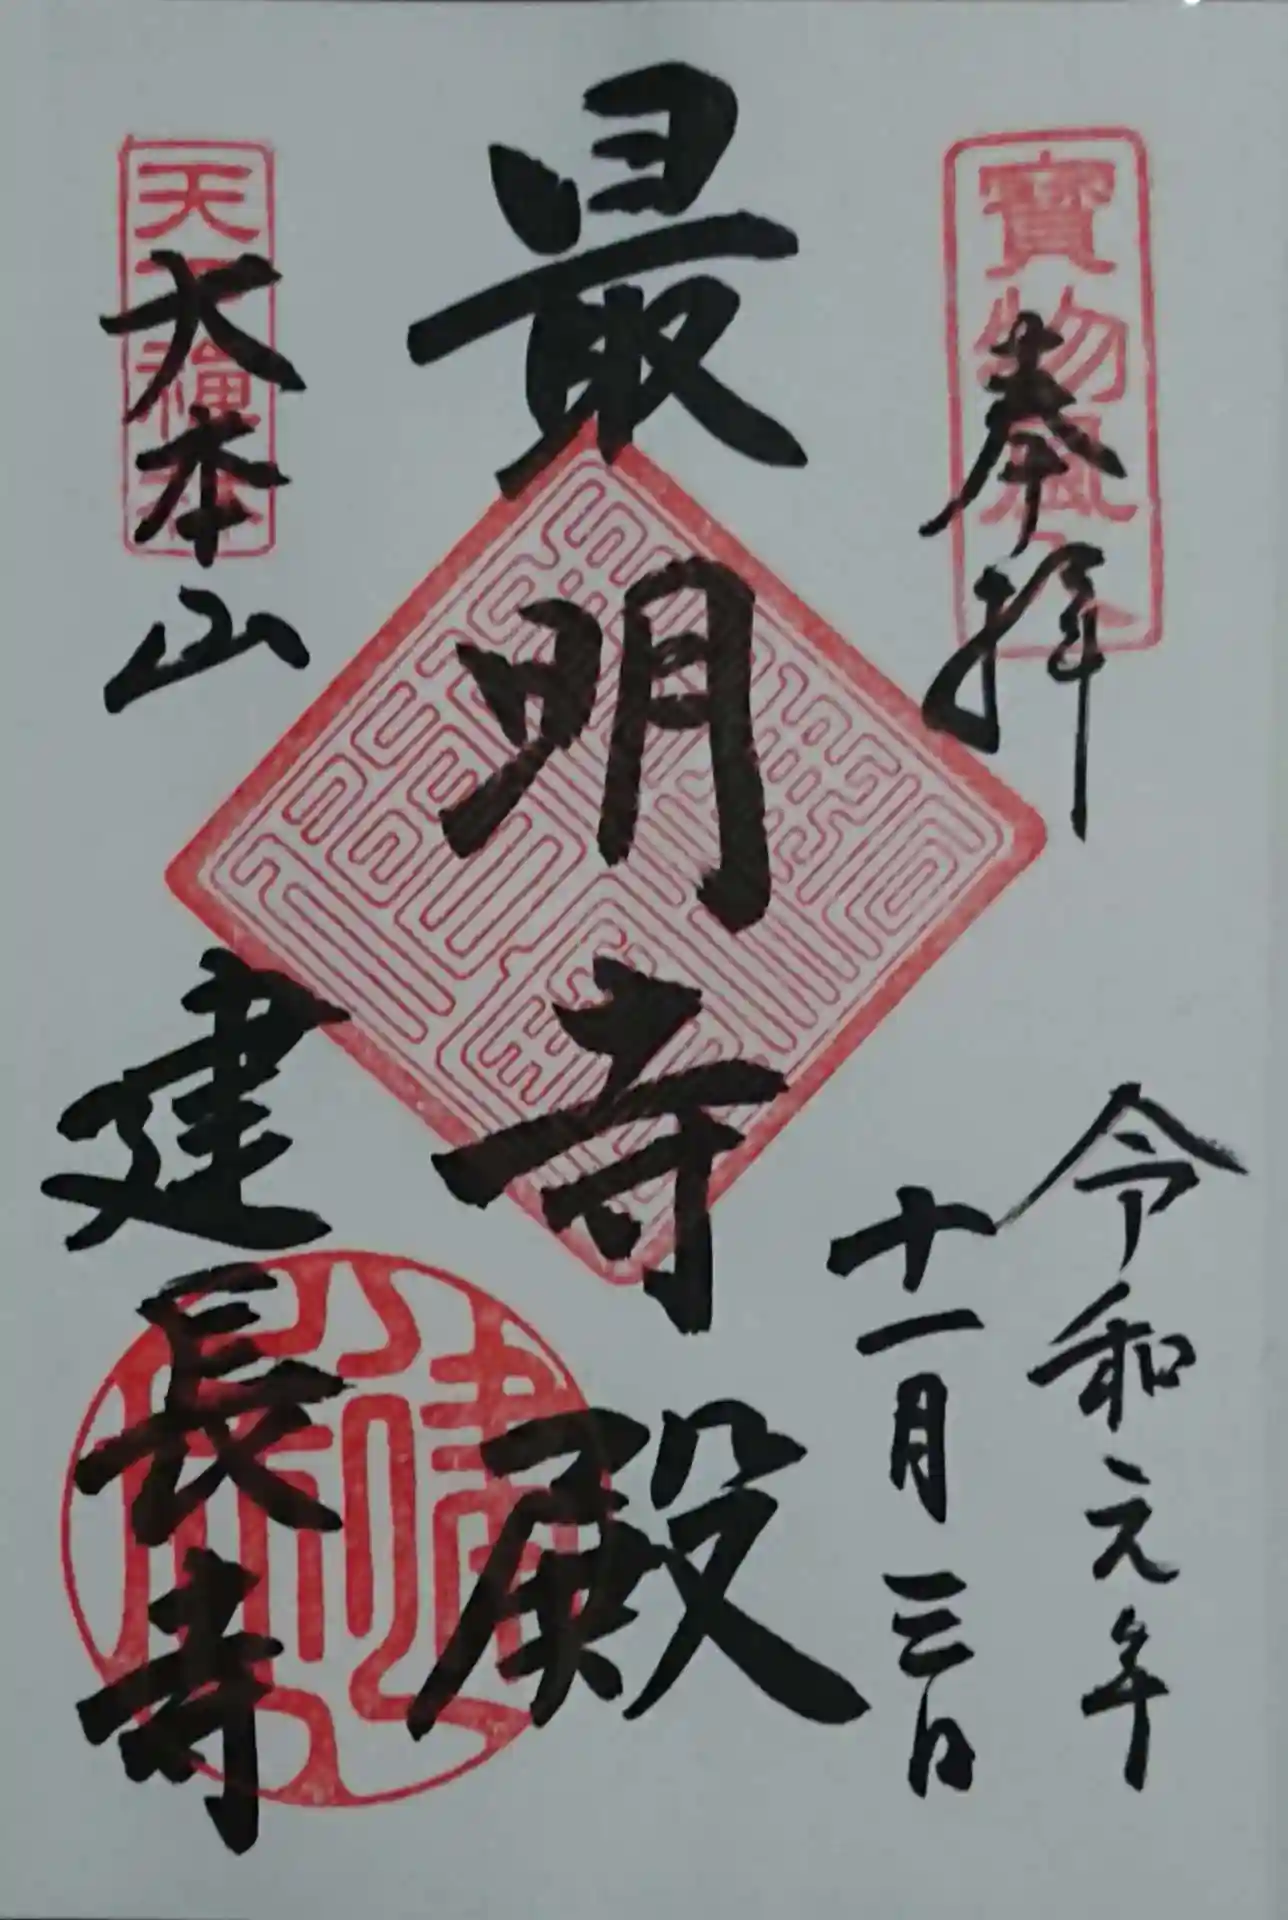 奉拝
令和元年
十一月三日
最明寺殿
大本山
建長寺
寶物風入